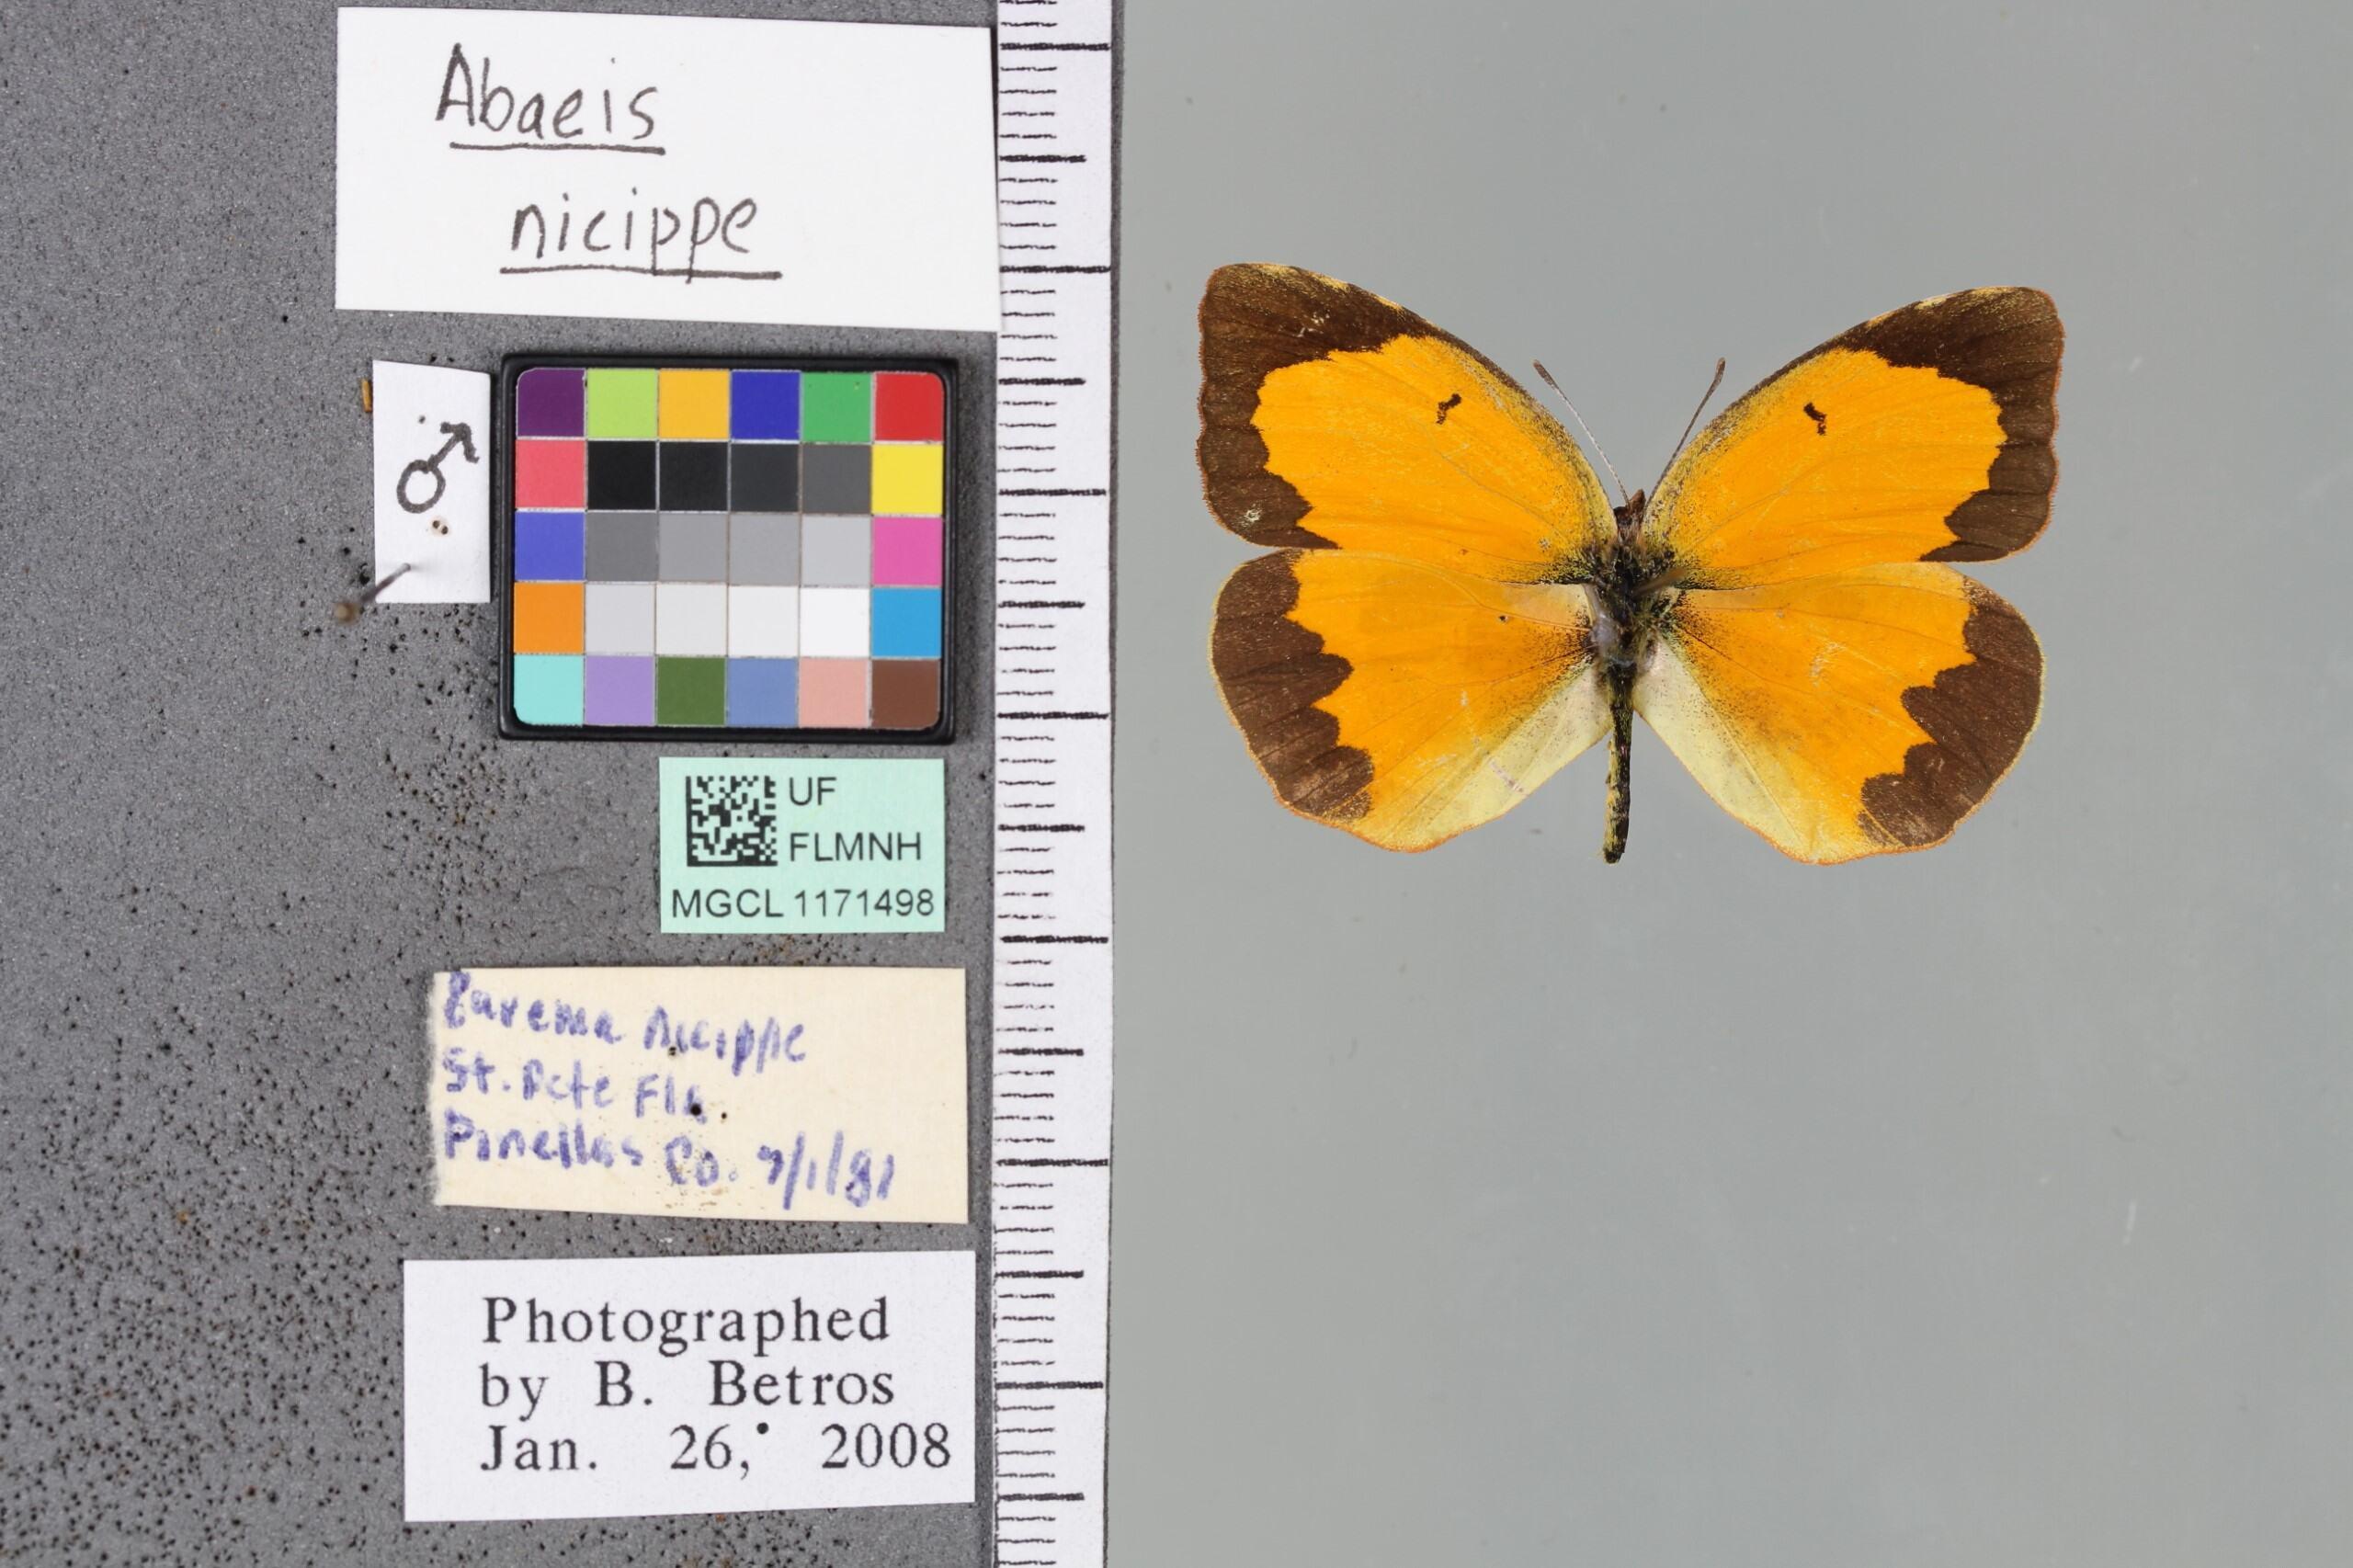 Abaeis
nicippe
♂
UF
FLMNH
MGCL 1171498
Eurema nicippe
St. Pete Fla.
Pinellas Co. 9/1/81
Photographed
by B. Betros
Jan. 26, 2008